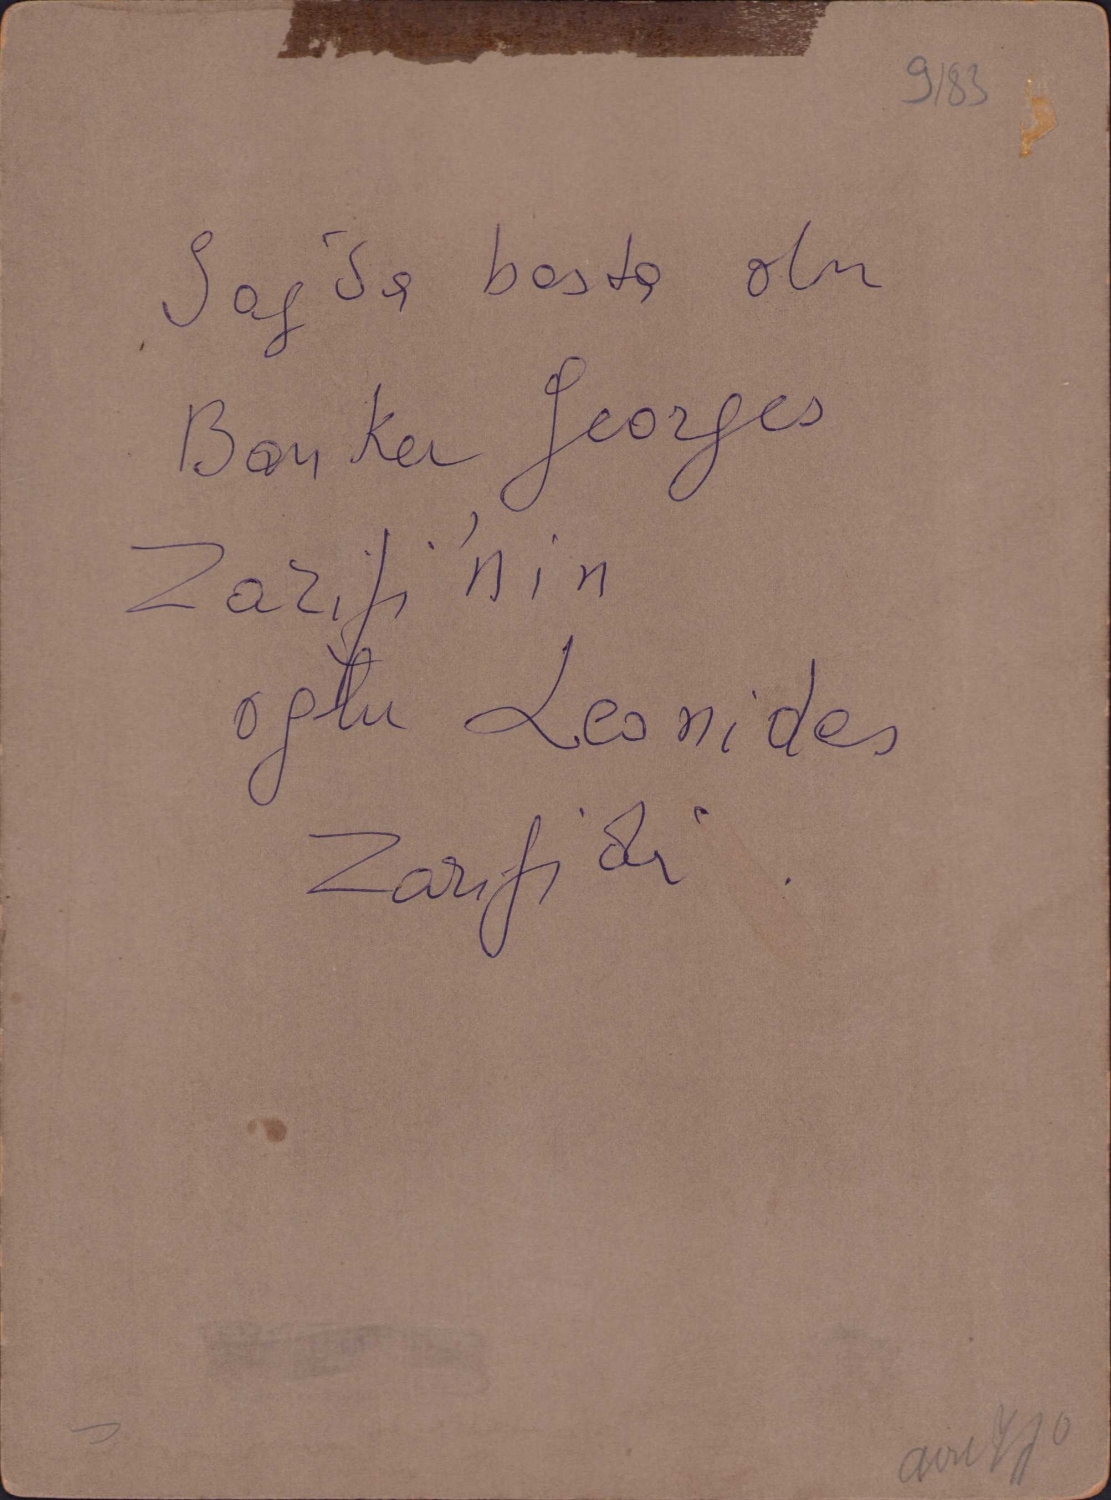 9/83
Sağda başta olan
Banker Georges
Zarifi'nin
oğlu Leonidas
Zarifidir.